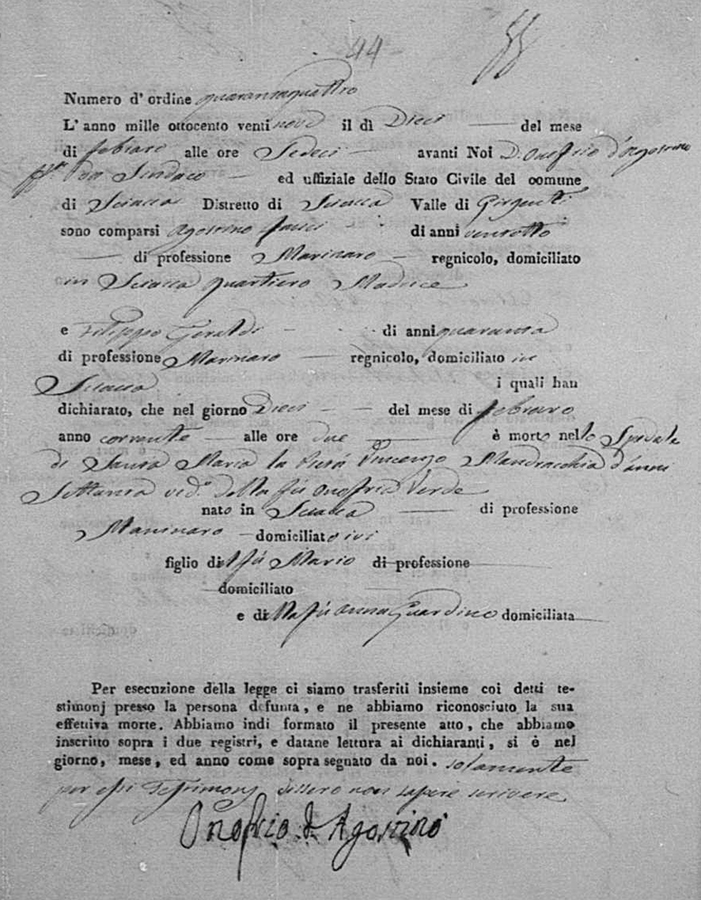 44
Numero d' ordine quarantaquattro
L' anno mille ottocento ventinove il dì Dieci del mese
di febraro alle ore Sedeci avanti Noi D. Onofrio d'Agostino
Sindaco ed uffiziale dello Stato Civile del comune
di Sciacca Distretto di Sciacca Valle di Girgenti
sono comparsi Agostino di anni ventotto
di professione Marinaro regnicolo, domiciliato
in Sciacca quartiero Madrice
e Filippo Geraldi di anni quaranta
di professione Marinaro regnicolo, domiciliato in
Sciacca i quali han
dichiarato, che nel giorno Dieci del mese di febraro
anno corrente alle ore due è morto nello Spedale
di Santa Maria la Pietà Vincenzo Mandracchia d'anni
Settanta ved.o della fù Onofria Verde
nato in Sciacca di professione
Marinaro domiciliato ivi
figlio del fù Mario di professione
domiciliato
e della fù Anna Guardino domiciliata
Per esecuzione della legge ci siamo trasferiti insieme coi detti te-
stimonj presso la persona defunta, e ne abbiamo riconosciuto la sua
effettiva morte. Abbiamo indi formato il presente atto, che abbiamo
inscritto sopra i due registri, e datane lettura ai dichiaranti, si è nel
giorno, mese, ed anno come sopra segnato da noi. solamente
per essi Testimonj dissero non sapere scrivere
Onofrio d'Agostino